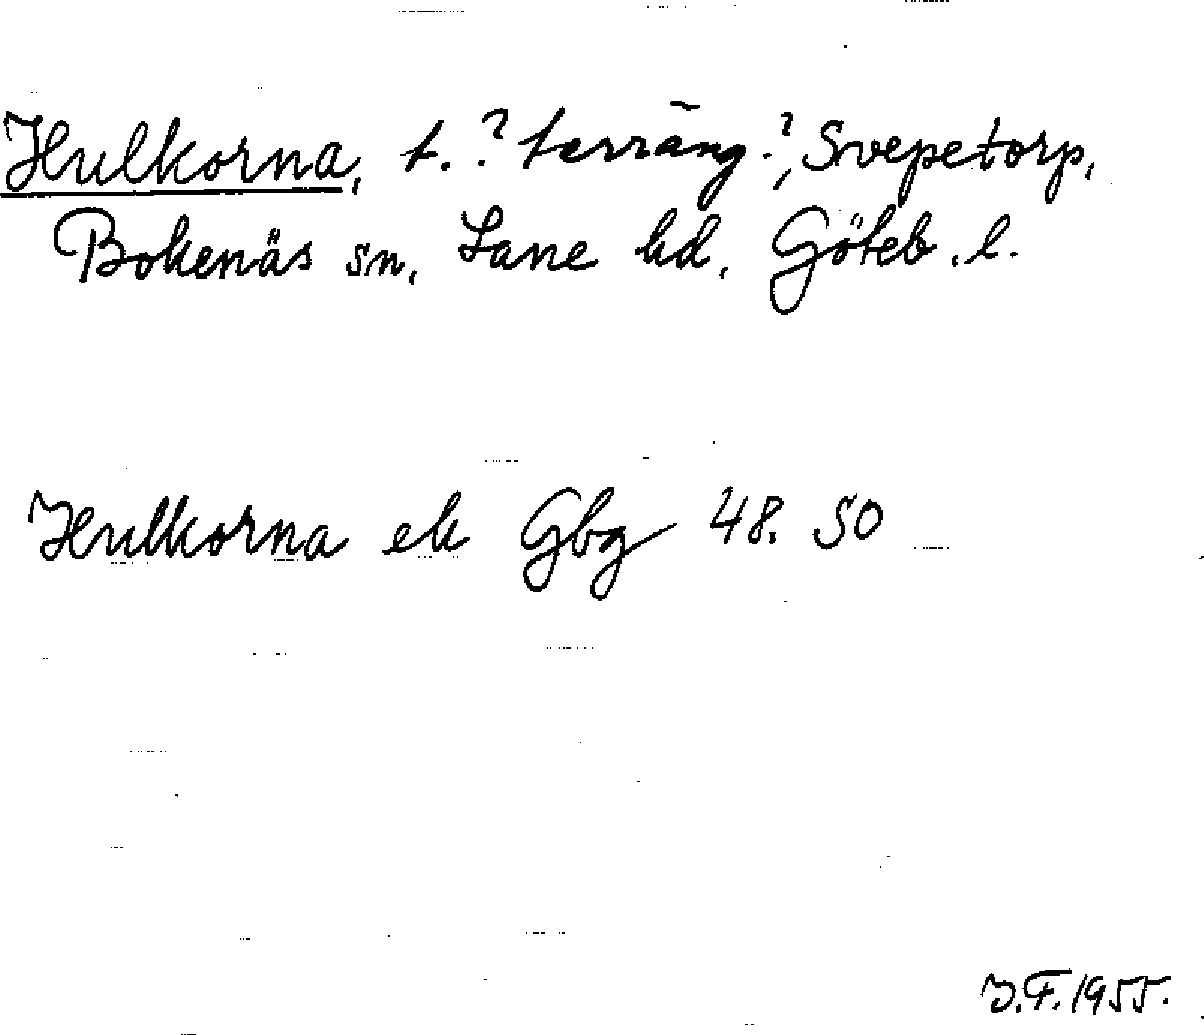 Hulkorna, t.? terräng?, Svepetorp,
Bokenäs sn, Lane hd, Göteb. l.
Hulkorna ek Gbg 48. 50
J.F. 1955.